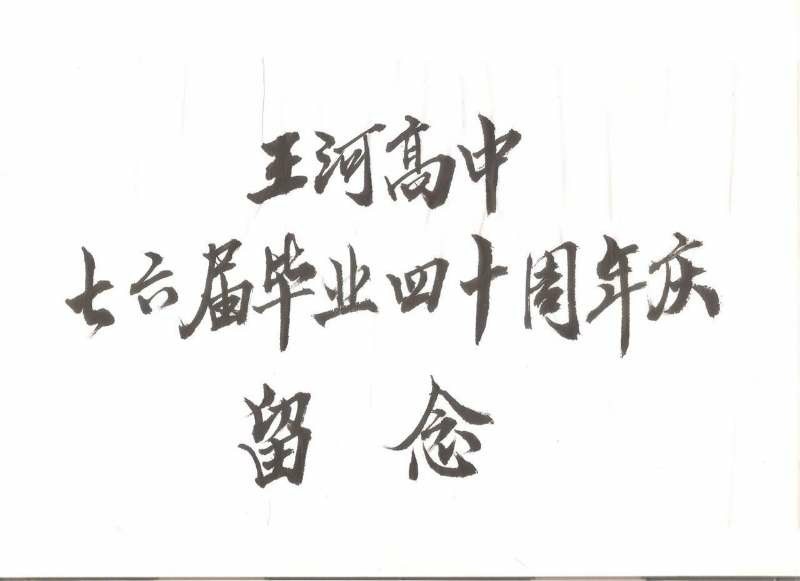 王河高中
七六届毕业四十周年庆
留念